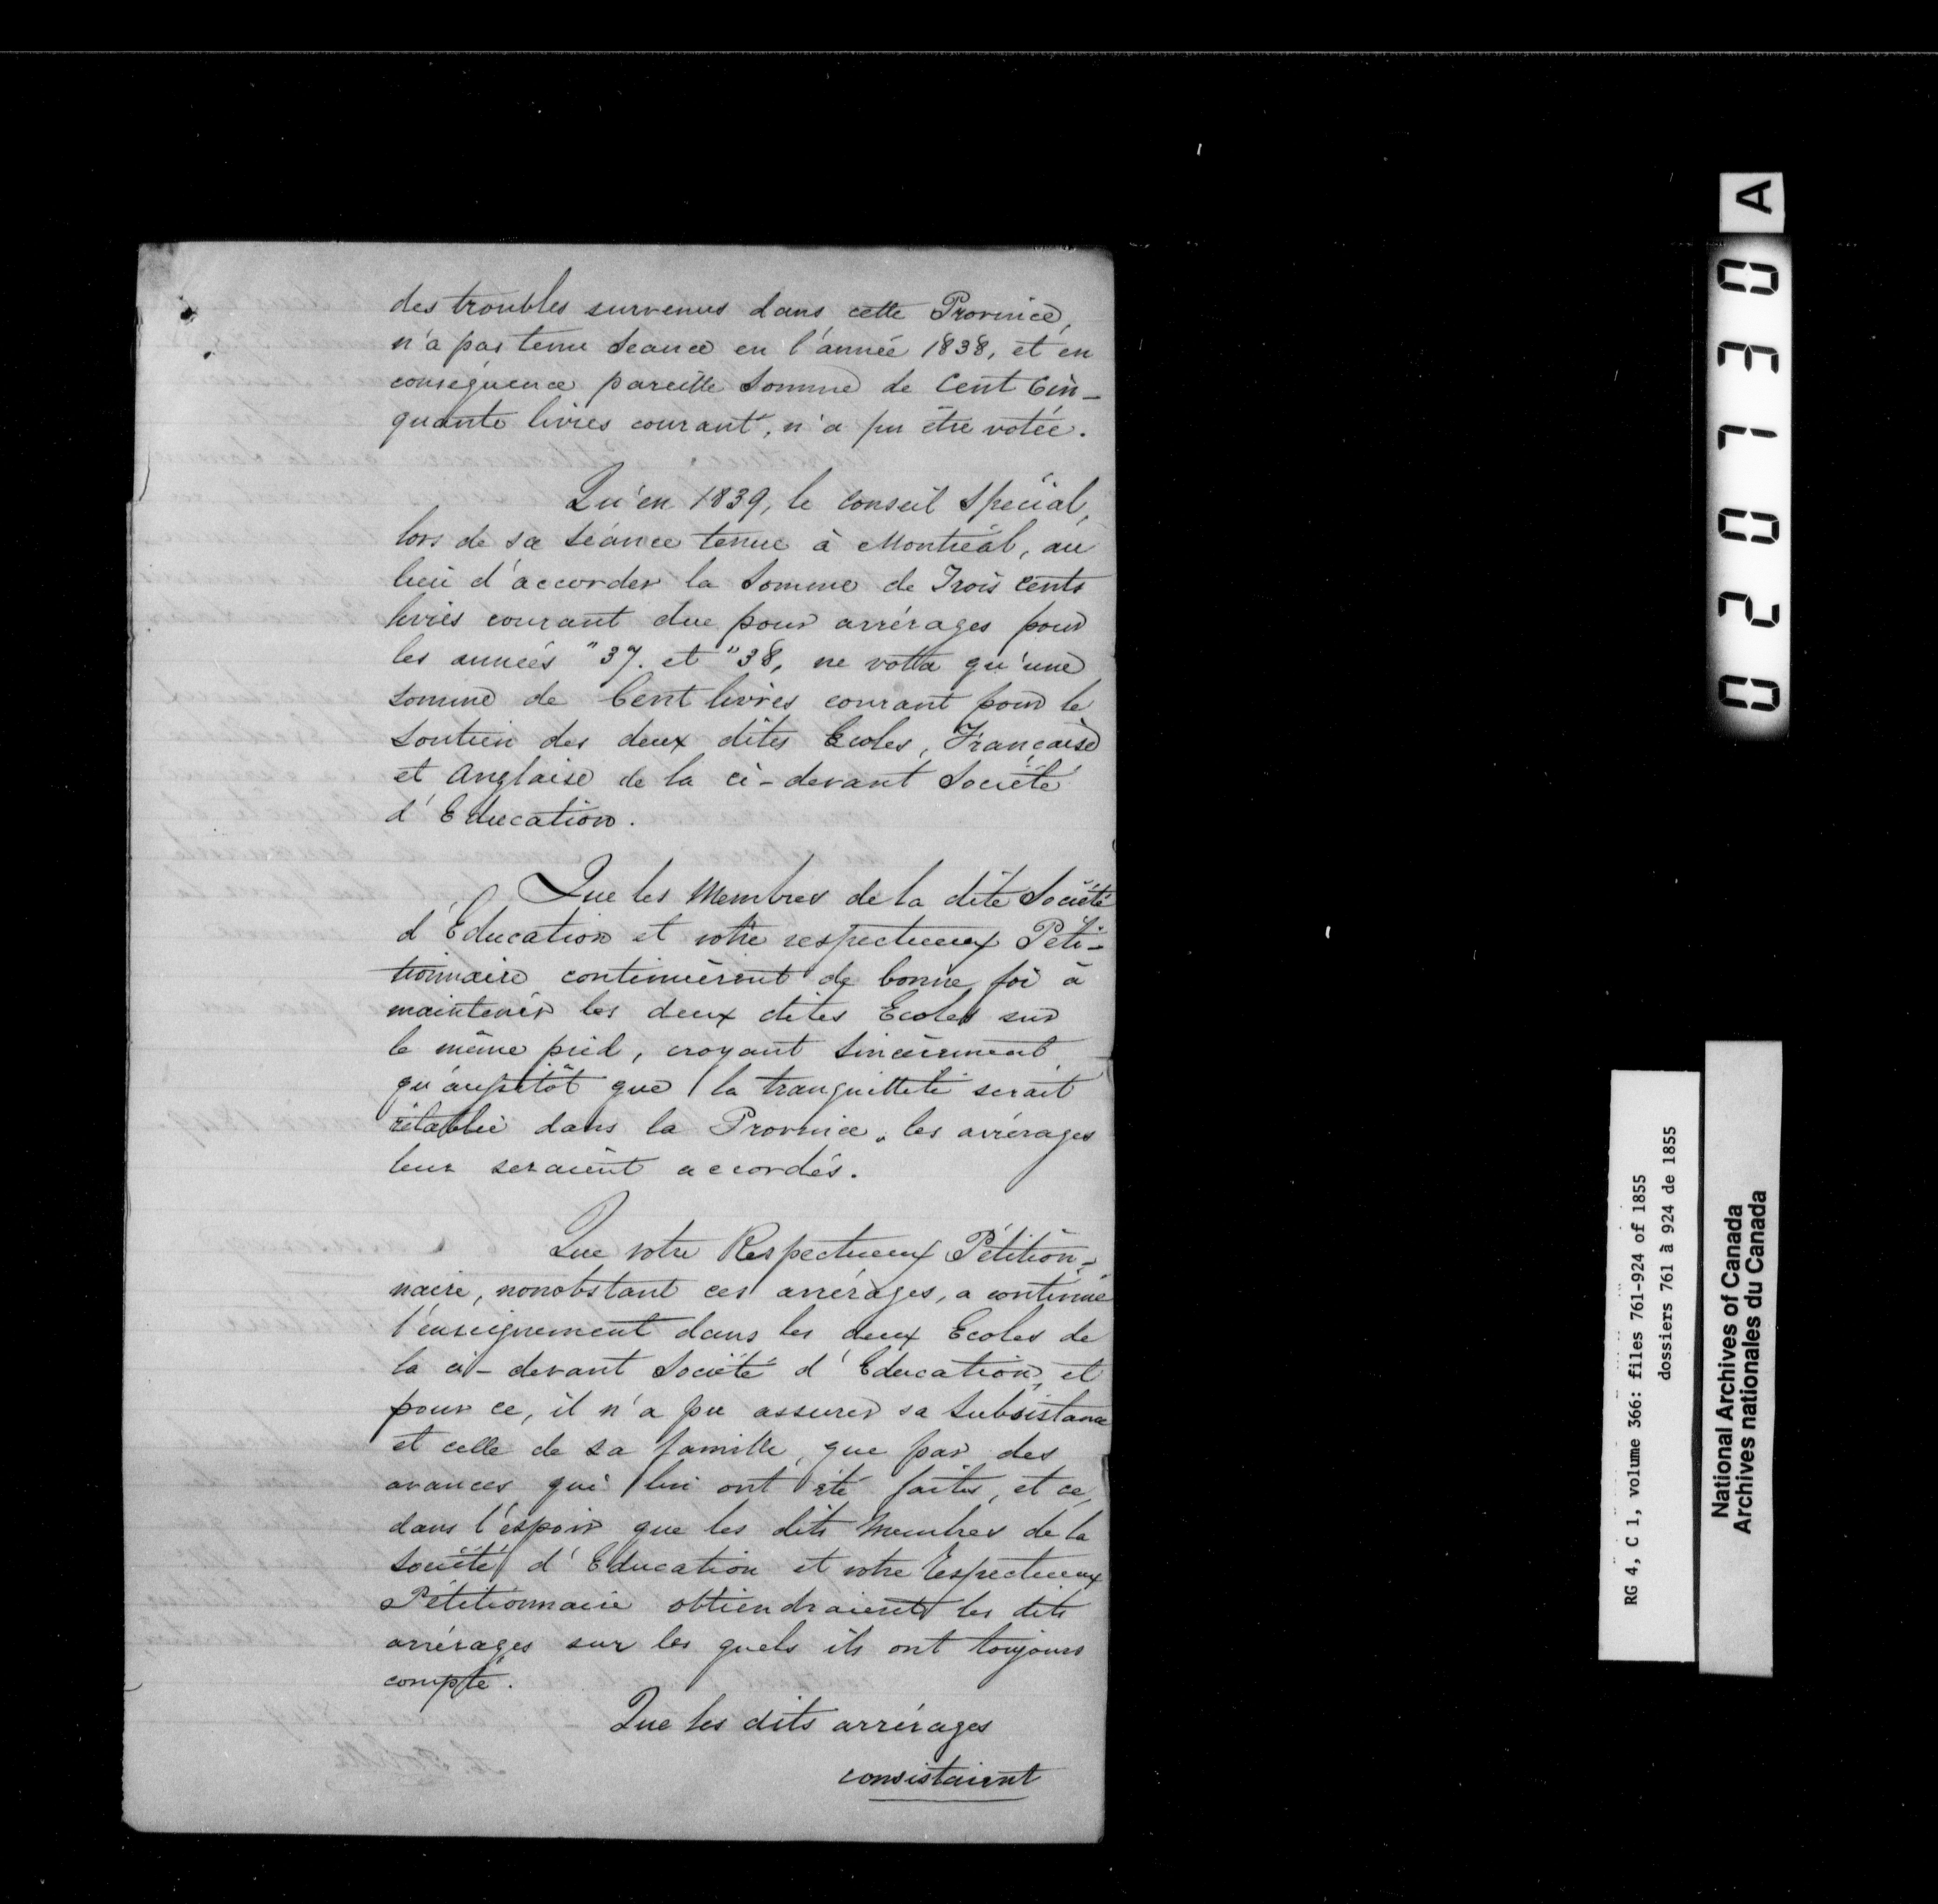 des troubles survenus dans cette Province,
n'a pas tenu Seance en l'année 1838, et en
conséquence pareille Somme de Cent Cin-
quante livres courant, n'a pu être votée.
Qu'en 1839, le Conseil Spécial,
lors de sa Séance tenue à Montréal, au
lieu d'accorder la Somme de Trois Cents
livres courant due pour arrérages pour
les années "37. et "38, ne vota qu'une
Somme de Cent livres courant pour le
Soutien des deux dites Ecoles, Française
et Anglaise de la ci-devant Société
d'Education.
Que les Membres de la dite Société
d'Education et votre respectueux Péti-
tionnaire continuèrent de bonne foi à
maintenir les deux dites Ecoles sur
le même pied, croyant Sincèrement
qu'aussitôt que la tranquilleté serait
rétablie dans la Province, les arrérages
leur seraient accordés.
Que votre Respectueux Pétition-
naire, nonobstant ces arrérages, a continué
l'enseignement dans les deux Ecoles de
la ci-devant Société d'Education, et
pour ce, il n'a pu assurer sa Subsistance
et celle de sa famille, que par des
avances qui lui ont été faites, et ce,
dans l'éspoir que les dits Membres de la
Société d'Education et votre Respectueux
Pétitionnaire obtiendraient les dits
arrérages sur les quels ils ont toujours
compté.
Que les dits arrérages
consistaient
020730 A
RG 4, C 1, volume 366: files 761-924 of 1855
dossiers 761 à 924 de 1855
National Archives of Canada
Archives nationales du Canada